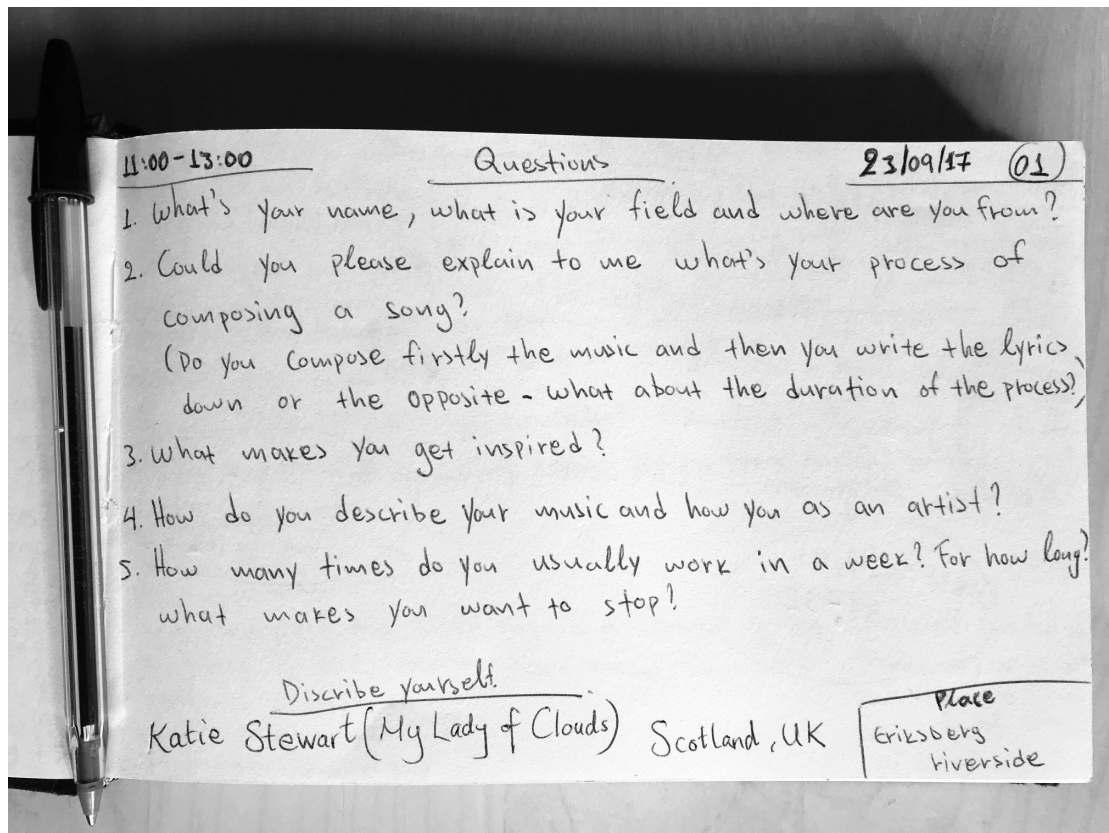 11:00-13:00 Questions 23/09/17 01
1. What's your name, what is your field and where are you from?
2. Could you please explain to me what's your process of
composing a song?
(Do you compose firstly the music and then you write the lyrics
down or the opposite - what about the duration of the process?)
3. What makes you get inspired?
4. How do you describe your music and how you as an artist?
5. How many times do you usually work in a week? For how long?
what makes you want to stop?
Discribe yourself.
Katie Stewart (My Lady of Clouds) Scotland, UK
Place
Eriksberg
riverside